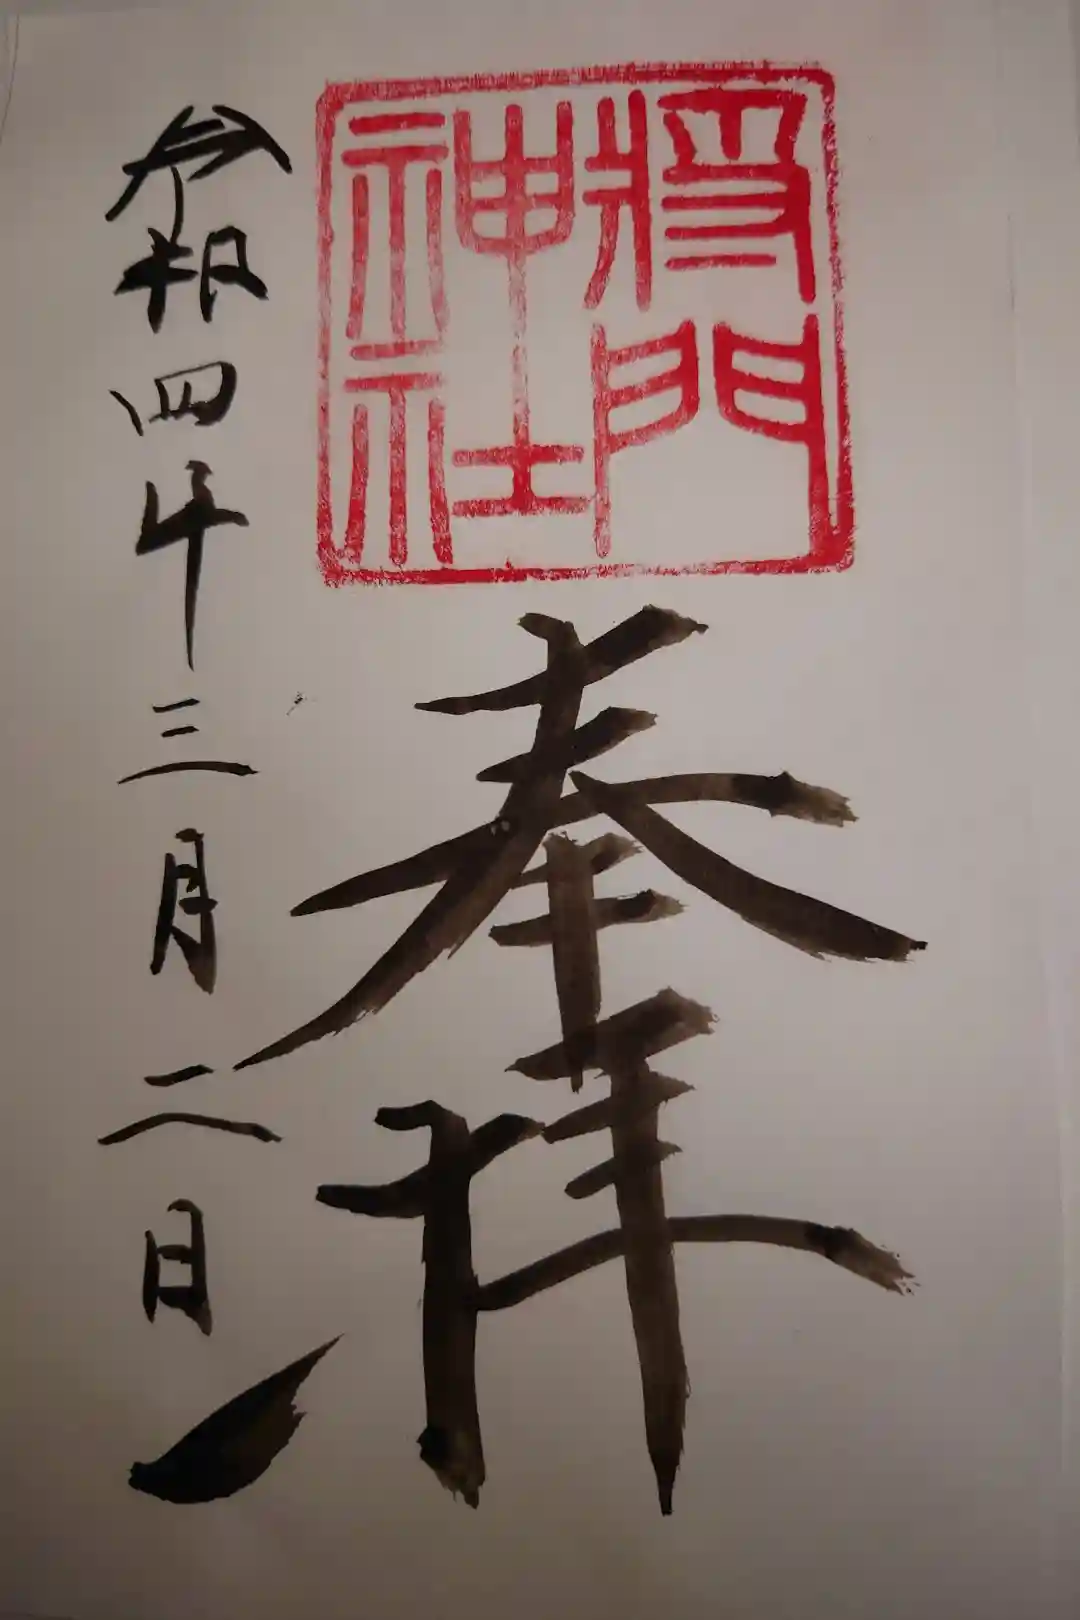 将門神社
奉拝
令和四年三月二日